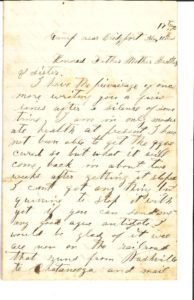 Camp near Bridgeport
Kind Father Mother Brother
& sister.
I have the privierge of one
more writing you a few
lines after a silence of some
time I am in only moder
ate health at present I have
not bin able to get the
cured so but what it will
com back in about two
weeks after getting it stopd
I cant get any thin but
to stop it with
yet if you can send me
any good ages antitote I
would be glad of it we
are now on the railroad
that runs from Nashville
to Chatanooga and